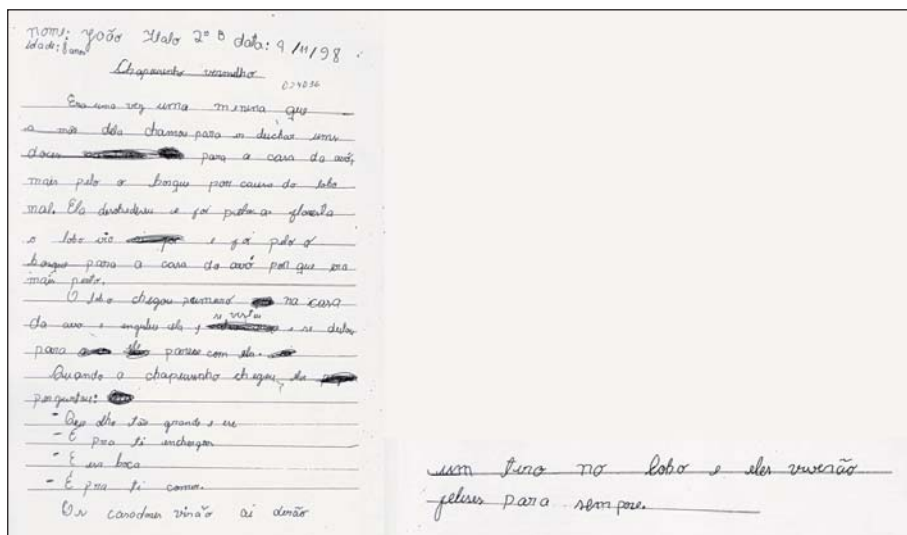 nome: João Italo 2º B data: 9/11/98
idade: 8 anos
Chapeuzinho vermelho
Era uma vez uma menina que
a mãe dela chamou para
doces para a casa da avó,
mais pelo o bosque por causa do lobo
mal. Ela desobedeceu e foi pela a floresta
o lobo vio e foi pelo o
bosque para a casa da avó por que era
mais perto.
O lobo chegou primeiro na casa
da avo e enguliu ela e se deitou
para parecer com ela.
Quando a chapeuzinho chegou, ela
perguntou:
- Que olho tão grande e
- É pra ti enchergar
- E boca
- É pra ti comer.
Os casadores virão ai derão
um tiro no lobo e eles viverão
felises para sempre.